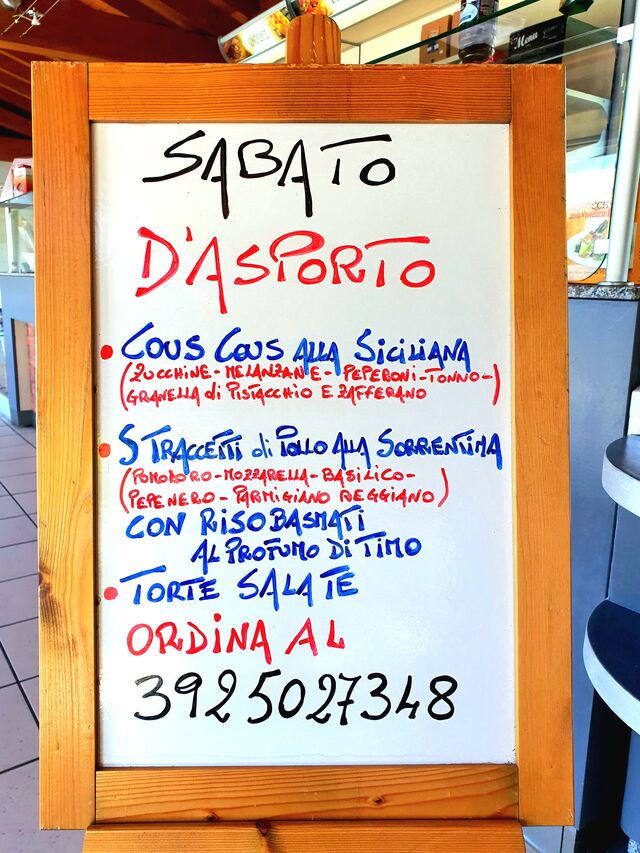 DOLCI
Menu
SABATO
D'ASPORTO
• COUS COUS ALLA SICILIANA
(ZUCCHINE - MELANZANE - PEPERONI - TONNO -)
GRANELLA di PISTACCHIO E ZAFFERANO
• STRACCETTI di POLLO ALLA SORRENTINA
(POMODORO - MOZZARELLA - BASILICO -
PEPE NERO - PARMIGIANO REGGIANO)
CON RISO BASMATI
AL PROFUMO DI TIMO
• TORTE SALATE
ORDINA AL
3925027348